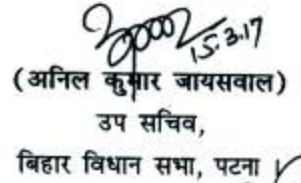 15.3.17
(अनिल कुमार जायसवाल)
उप सचिव,
बिहार विधान सभा, पटना